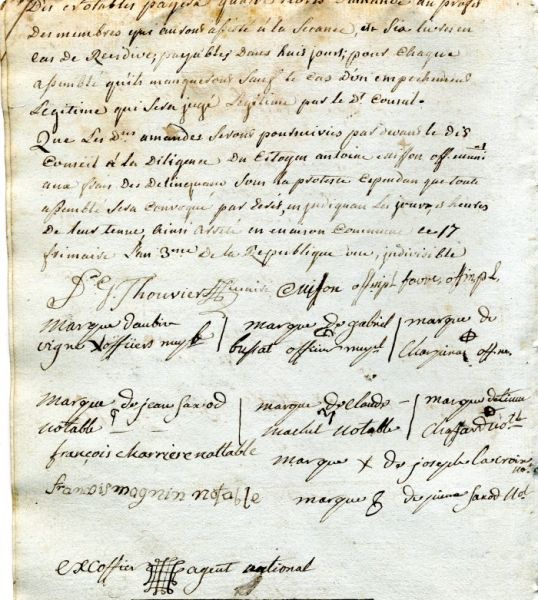 Des notables payera quatre livres d'amande au profit
des membres qui auront assisté à la Séance, et Six livres en
cas de Recidive, payables dans huit jours, pour chaque
assemblé qu'ils manqueront Sauf le cas d'en empechement
Legitime qui sera jugé Legitime par le dt Conseil.
Que Les dites amandes Seront poursuivies par devant le dit
Conseil à la Diligence du Citoyen antoine off. muni
aux frais Des Delinquans Sous la proteste Cependan que toute
assemblé Sera Convoqué par devet, indiquan Les jours, et heures
de leur tenue, ainsi arreté en maison Commune ce 17
frimaire L'an 3me de la Republique une, indivisible
Thouvier maire favre
Marque d'aubin
vigne x officiers mupl
marque de gabriel
bussat officier mupl
marque de
Marque de jean Saxod
Notable
marque de Claude
Notable
marque
françois charriere nottable
marque x de joseph lacroix
francois magnin notable
marque de pierre Saxod Not
excoffier agent national